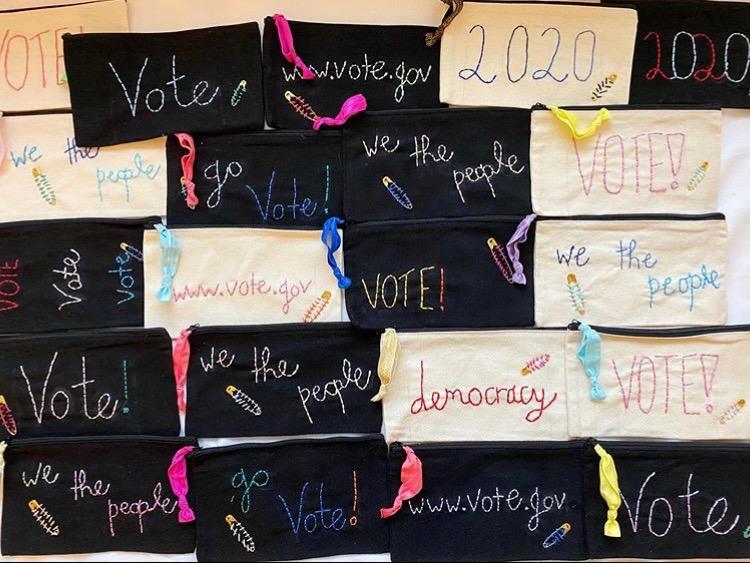 VOTE!
Vote
www.vote.gov
2020
2020
we the
people
go
Vote!
we the
people
VOTE!
VOTE
Vote
vote
www.vote.gov
VOTE!
we the
people
Vote!
we the
people
democracy
VOTE!
we the
people
go
Vote!
www.vote.gov
Vote